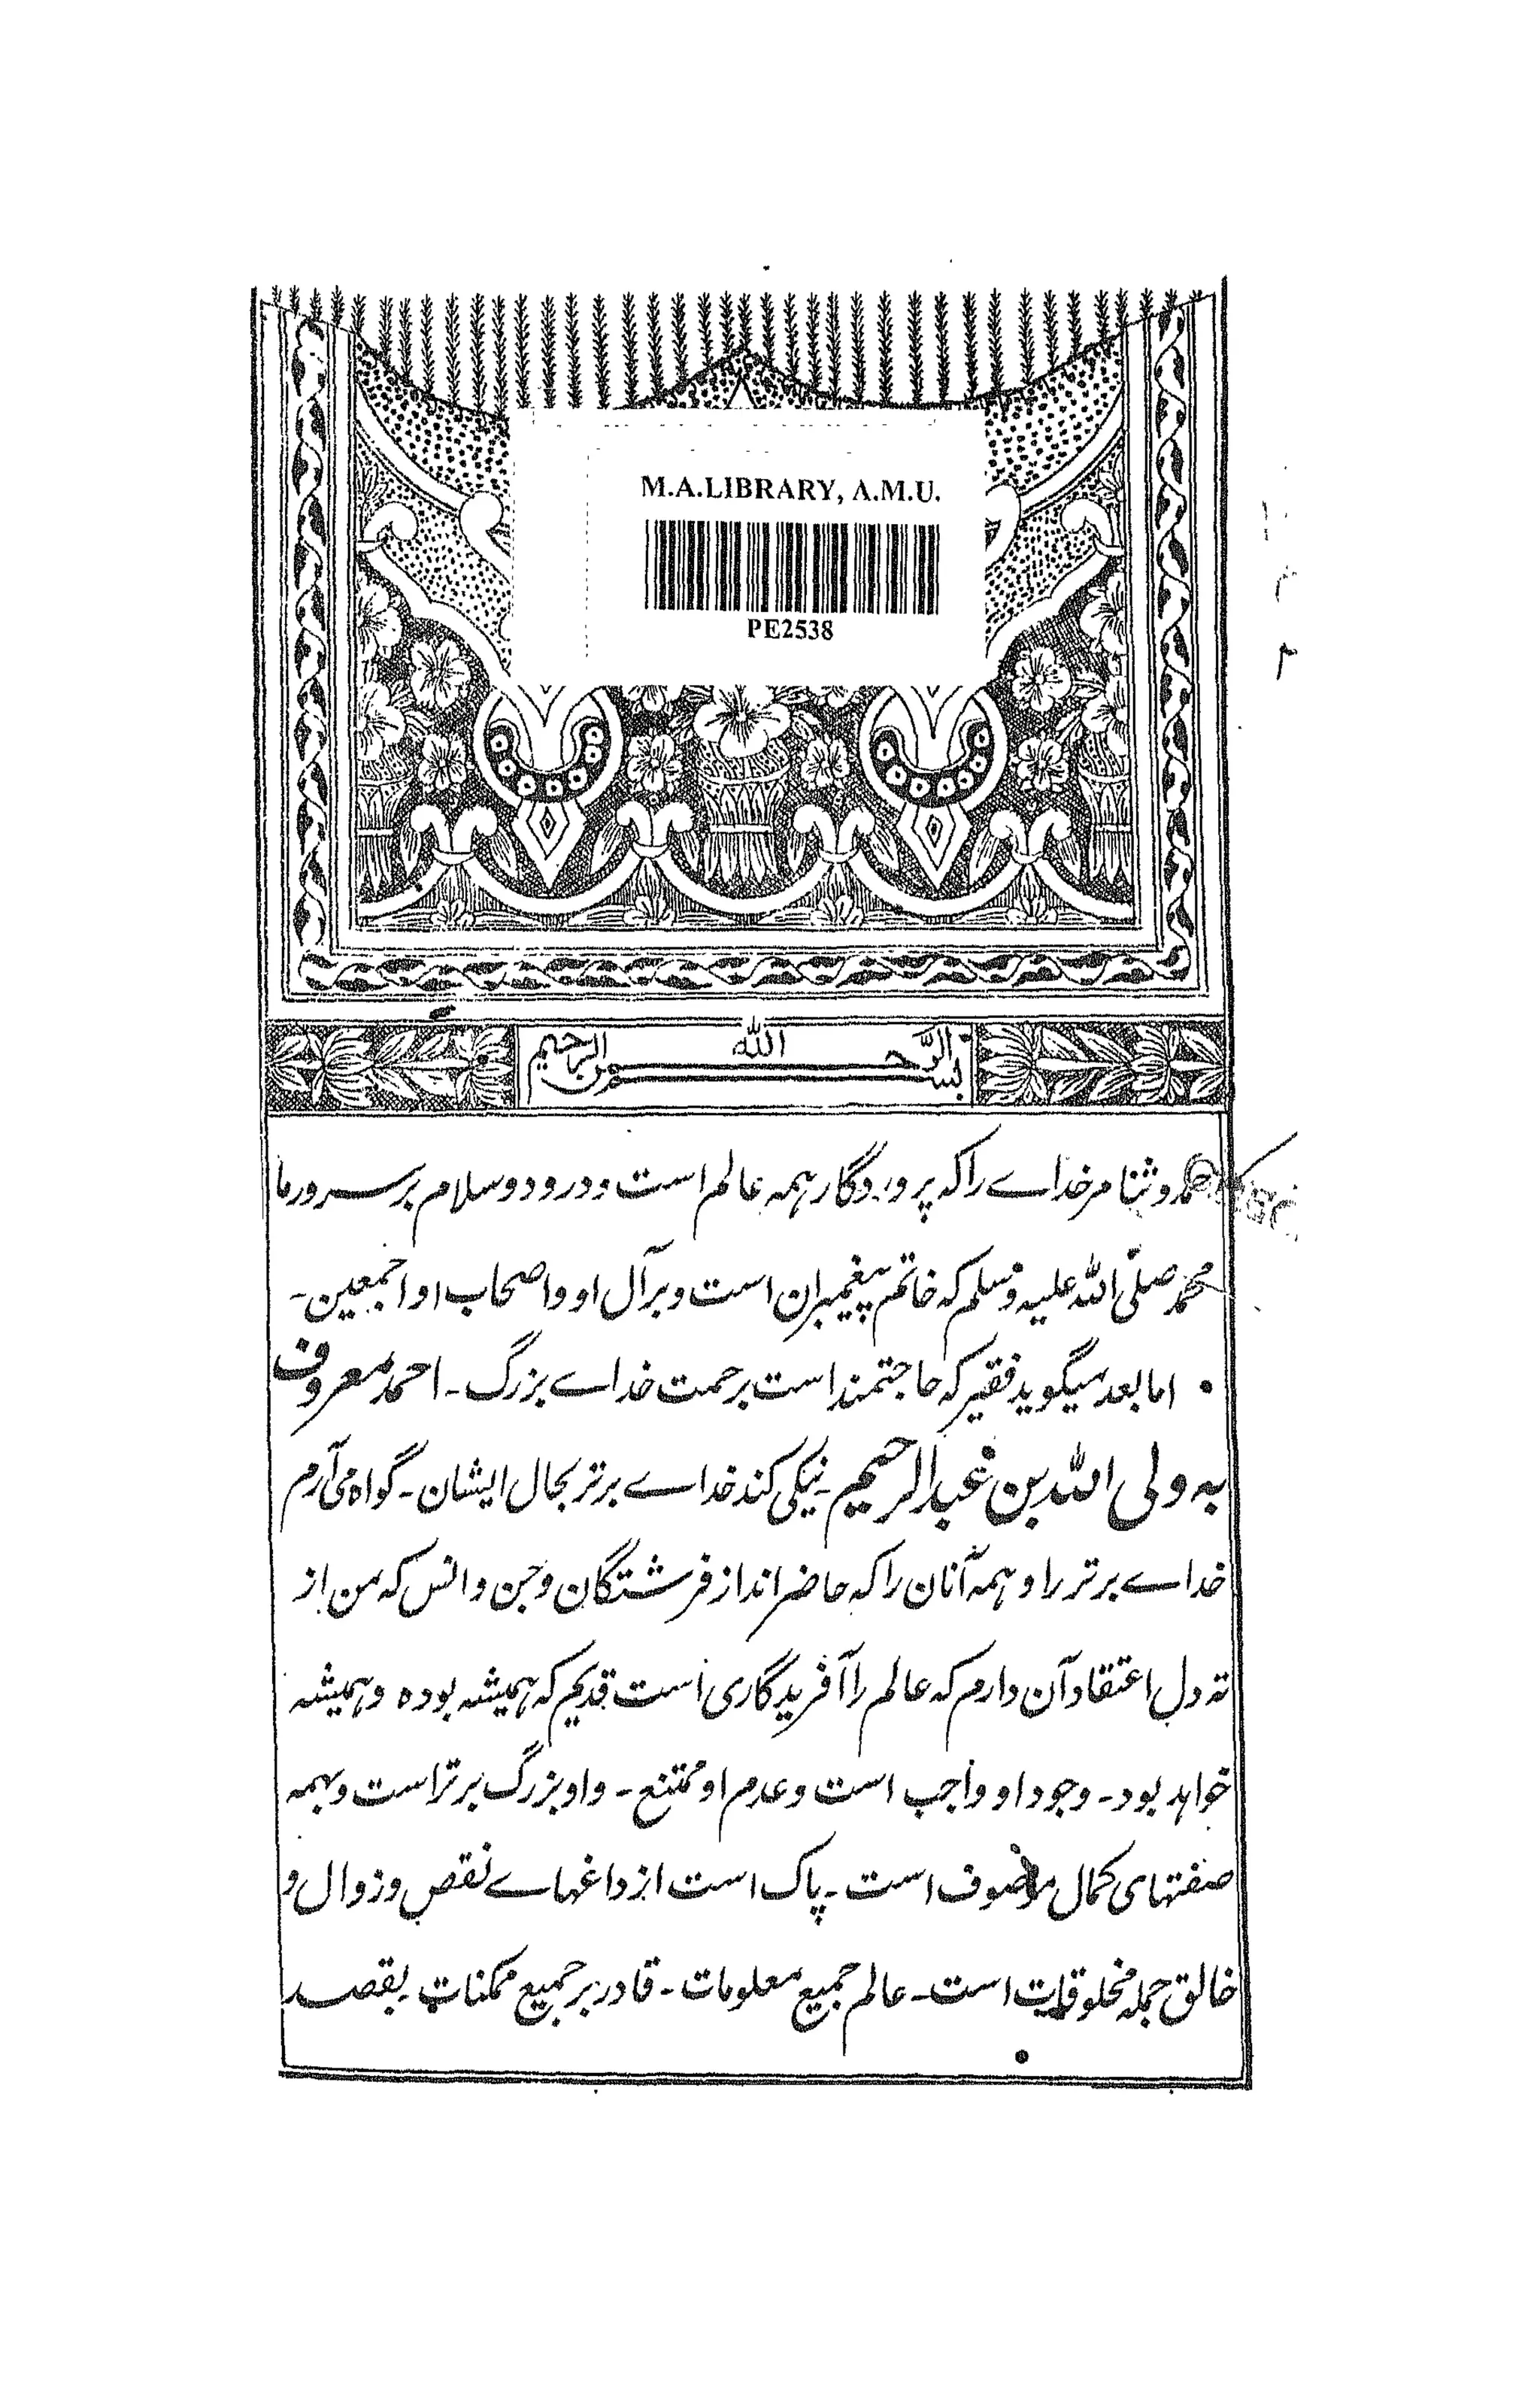 M.A.LIBRARY, A.M.U.
PE2538
بسم الله الرحمن الرحيم
حمد و ثنا مر خداے را که پروردگار همه عالم است و درود و سلام بر سرور ما
محمد صلّی الله علیه وسلم که خاتم پیغمبران است و بر آل او و اصحاب او اجمعین-
اما بعد میگوید فقیر که حاجتمند است برحمت خداے بزرگ- احمد معروف
به ولی الله بن عبد الرحیم- نیکی کند خداے برتر بحال ایشان- گواه می آرم
خداے برتر را و همه آنان را که حاضر اند از فرشتگان و جن و انس که من از
ته دل اعتقاد آن دارم که عالم را آفریدگاری است قدیم که همیشه بوده و همیشه
خواهد بود- وجود او واجب است و عدم او ممتنع- و او بزرگ برتر است و بهمه
صفتهای کمال موصوف است- پاک است از داغهاے نقص و زوال و
خالق جمله مخلوقات است- عالم جمیع معلومات- قادر بر جمیع ممکنات بقصد